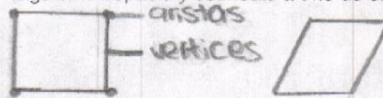 aristas
vertices